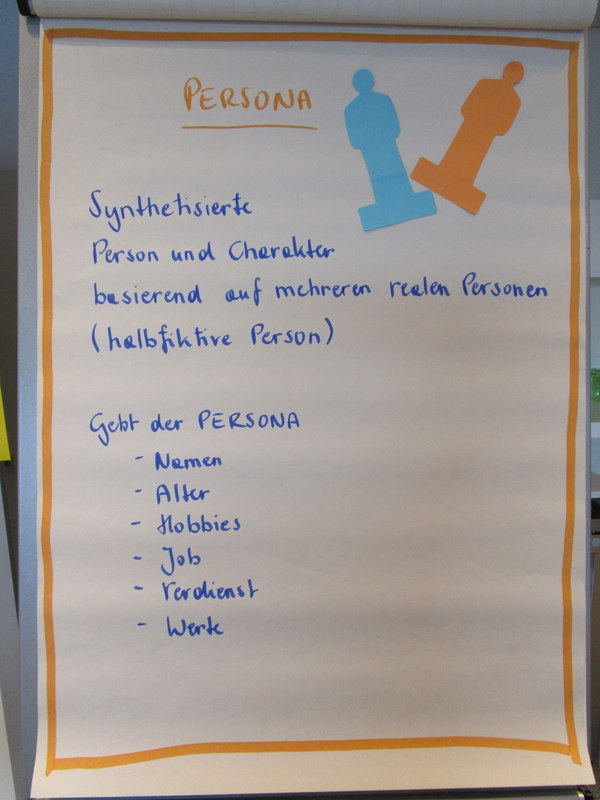 PERSONA
Synthetisierte
Person und Charakter
basierend auf mehreren realen Personen
(halbfiktive Person)
Gebt der PERSONA
- Namen
- Alter
- Hobbies
- Job
- Verdienst
- Werte